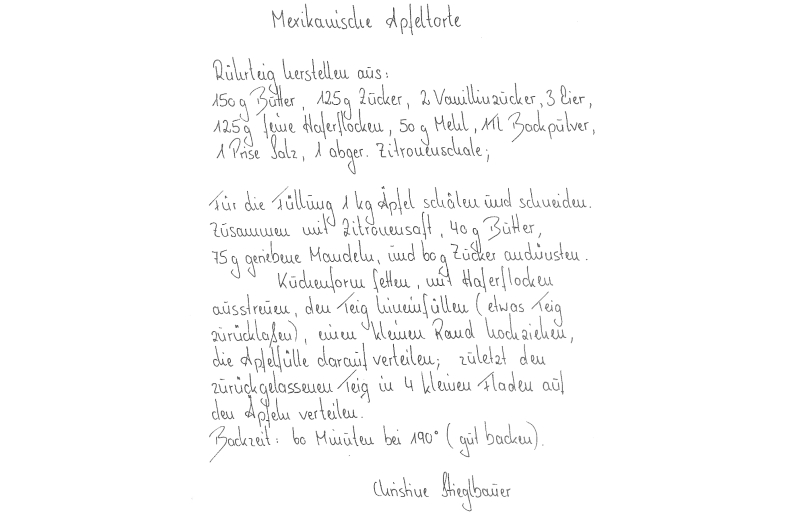 Mexikanische Apfeltorte
Rührteig herstellen aus:
150g Butter, 125g Zucker, 2 Vanillinzucker, 3 Eier,
125g feine Haferflocken, 50g Mehl, 1TL Backpulver,
1 Prise Salz, 1 abger. Zitronenschale;
Für die Füllung 1 kg Äpfel schälen und schneiden.
Zusammen mit Zitronensaft, 40g Butter,
75g geriebene Mandeln, und 60g Zucker andünsten.
Kuchenform fetten, mit Haferflocken
ausstreuen, den Teig hineinfüllen (etwas Teig
zurücklaßen), einen kleinen Rand hochziehen,
die Apfelfülle darauf verteilen; zuletzt den
zurückgelassenen Teig in 4 kleinen Fladen auf
den Äpfeln verteilen.
Backzeit: 60 Minuten bei 190° (gut backen).
Christine Stieglbauer